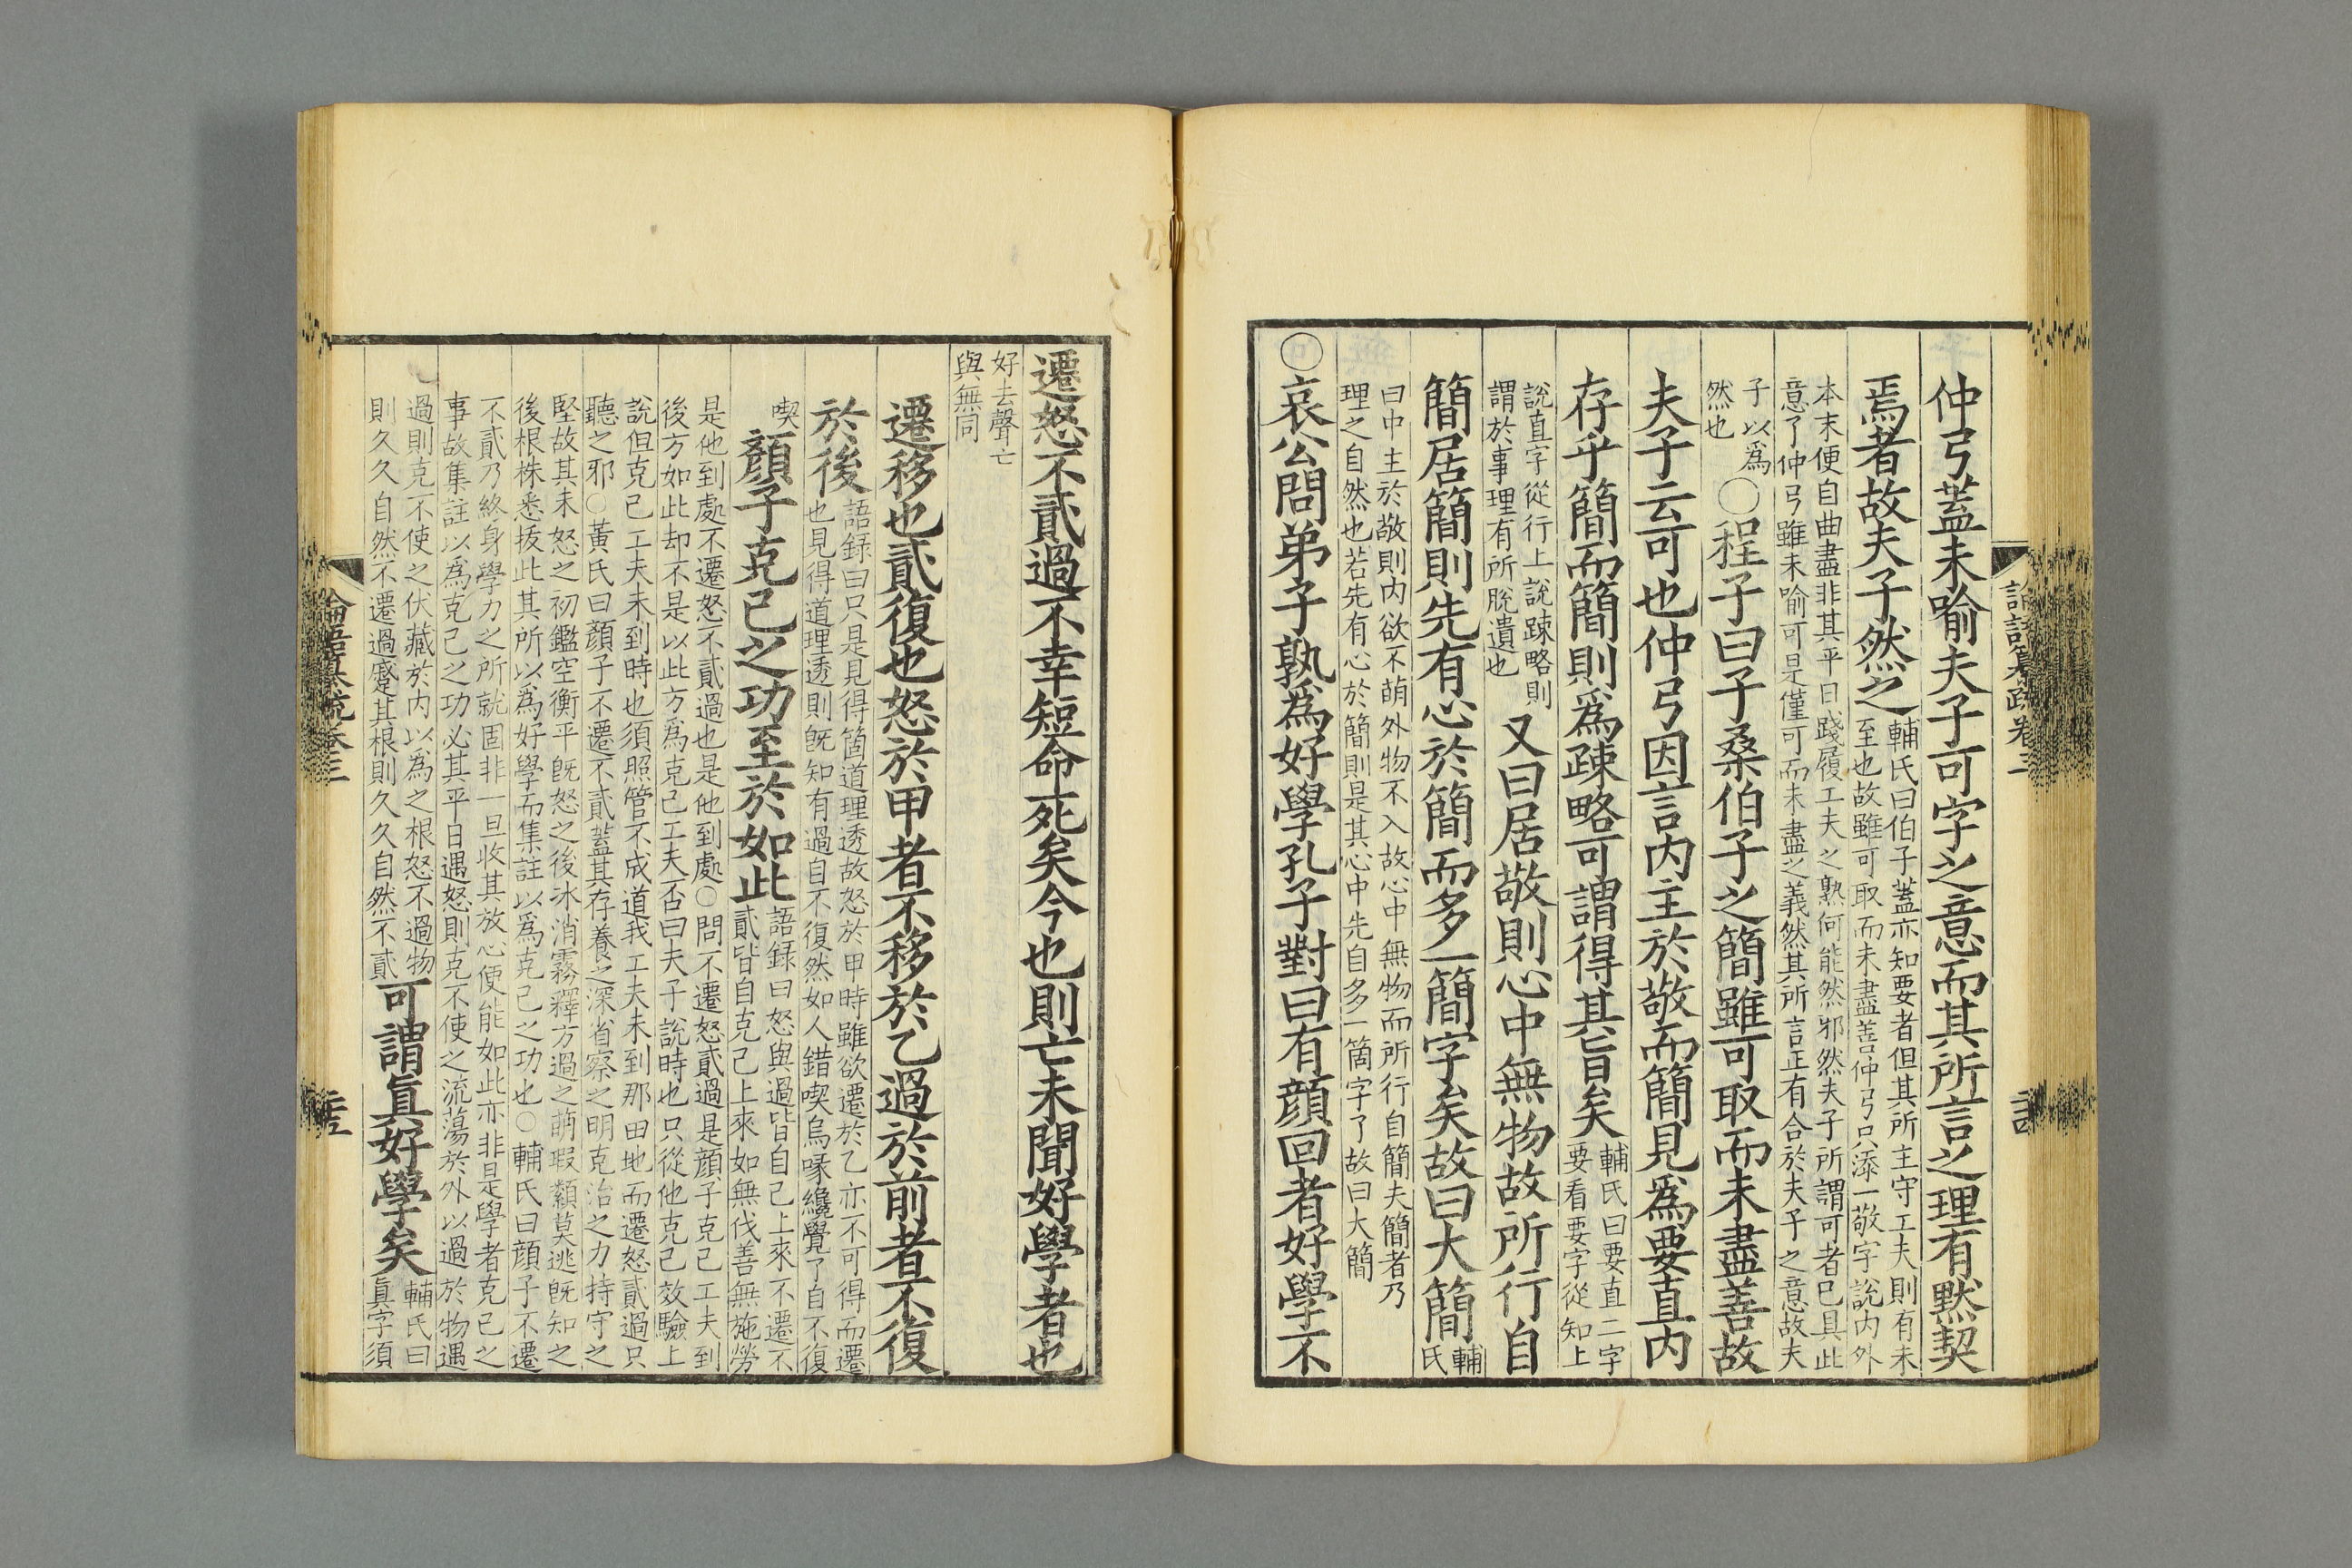 論語纂疏卷三
仲弓蓋未喻夫子可字之意而其所言之理有默契
焉者故夫子然之
輔氏曰伯子蓋亦知要者但其所主守工夫則有未
至也故雖可取而未盡善仲弓只添一敬字說內外
本末便自曲盡非其平日踐履工夫之熟何能然邪然夫子所謂可者已具此
意了仲弓雖未喻可是僅可而未盡之義然其所言正有合於夫子之意故夫
子以為
然也
○程子曰子桑伯子之簡雖可取而未盡善故
夫子云可也仲弓因言内主於敬而簡見為要直内
存乎簡而簡則為疎略可謂得其旨矣
輔氏曰要直二字
要看要字從知上
說直字從行上說踈略則
謂於事理有所脫遺也
又曰居敬則心中無物故所行自
簡居簡則先有心於簡而多一簡字矣故曰大簡
輔
氏
曰中主於敬則内欲不萌外物不入故心中無物而所行自簡夫簡者乃
理之自然也若先有心於簡則是其心中先自多一箇字了故曰大簡
○哀公問弟子孰為好學孔子對曰有顔回者好學不
遷怒不貳過不幸短命死矣今也則亡未聞好學者也
好去聲亡
與無同
遷移也貳復也怒於甲者不移於乙過於前者不復
於後
語録曰只是見得箇道理透故怒於甲時雖欲遷於乙亦不可得而遷
也見得道理透則旣知有過自不復然如人錯喫烏喙纔覺了自不復
喫
顏子克己之功至於如此
語録曰怒與過皆自己上來不遷不
貳皆自克己上來如無伐善無施勞
是他到處不遷怒不貳過也是他到處○問不遷怒貳過是顔子克己工夫到
後方如此却不是以此方為克己工夫否曰夫子說時也只從他克己效驗上
說但克己工夫未到時也須照管不成道我工夫未到那田地而遷怒貳過只
聽之邪○黃氏曰顏子不遷不貳蓋其存養之深省察之明克治之力持守之
堅故其未怒之初鑑空衡平旣怒之後冰消霧釋方過之萌瑕纇莫逃旣知之
後根株悉拔此其所以為好學而集註以為克己之功也○輔氏曰顔子不遷
不貳乃終身學力之所就固非一旦收其放心便能如此亦非是學者克己之
事故集註以為克己之功必其平日遇怒則克不使之流蕩於外以過於物遇
過則克不使之伏藏於内以為之根怒不過物
則久久自然不遷過蹙其根則久久自然不貳
可謂真好學矣
輔氏曰
眞字須
論語纂疏卷三